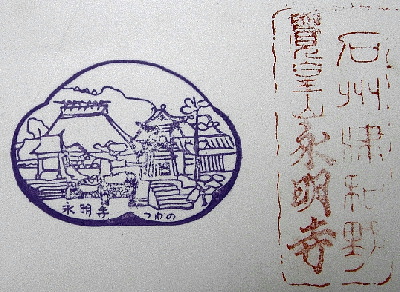 石州津和野
覺皇山永明寺
永明寺 つわの